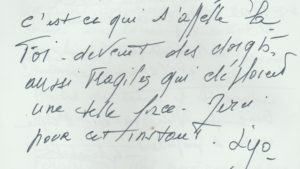 c'est ce qui s'appelle la
Foi - devant des doigts
aussi fragiles qui déploient
une telle force. Merci
pour cet instant.